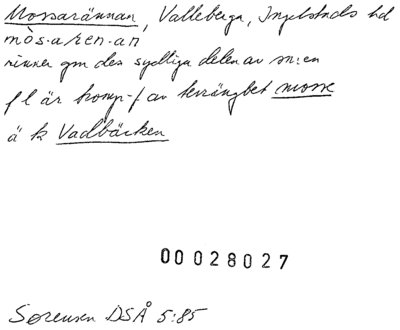 Mossarännan, Valleberga, Ingelstads hd
mòs·a,ren·an
rinner gm den sydliga delen av sn:en
f l är komp-f av terrängbet mosse
ä k Vadbäcken
00028027
Sørensen DSÅ 5:85